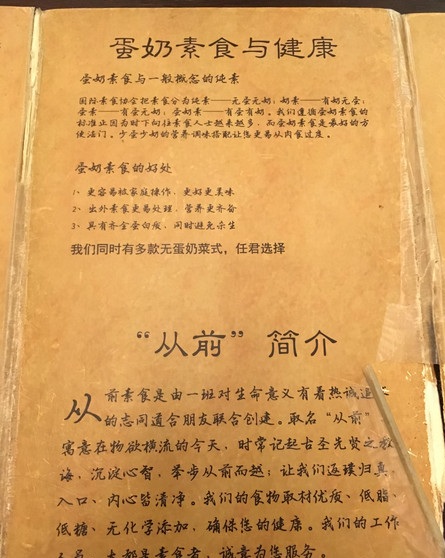 蛋奶素食与健康
蛋奶素食与一般概念的纯素
国际素食协会把素食分为纯素——无蛋无奶；奶素——有奶无蛋；
蛋素——有蛋无奶；蛋奶素——有蛋有奶。我们遵循蛋奶素食的
标准正因为时下向往素食人士越来越多，而蛋奶素食是最好的方
便法门。少蛋少奶的营养调味搭配让您更易从肉食过度。
蛋奶素食的好处
1、更容易被家庭操作，更好更美味
2、出外素食更易处理，营养更齐备
3、具有齐全蛋白质，同时避免杀生
我们同时有多款无蛋奶菜式，任君选择
“从前”简介
从前素食是由一班对生命意义有着热诚追
的志同道合朋友联合创建。取名“从前”
寓意在物欲横流的今天，时常记起古圣先贤之教
诲，沉淀心智，举步从前而越；让我们返璞归真，
入口、内心皆清净。我们的食物取材优质、低脂、
低糖、无化学添加，确保您的健康。我们的工作
人员，大都是素食者，诚意为您服务。